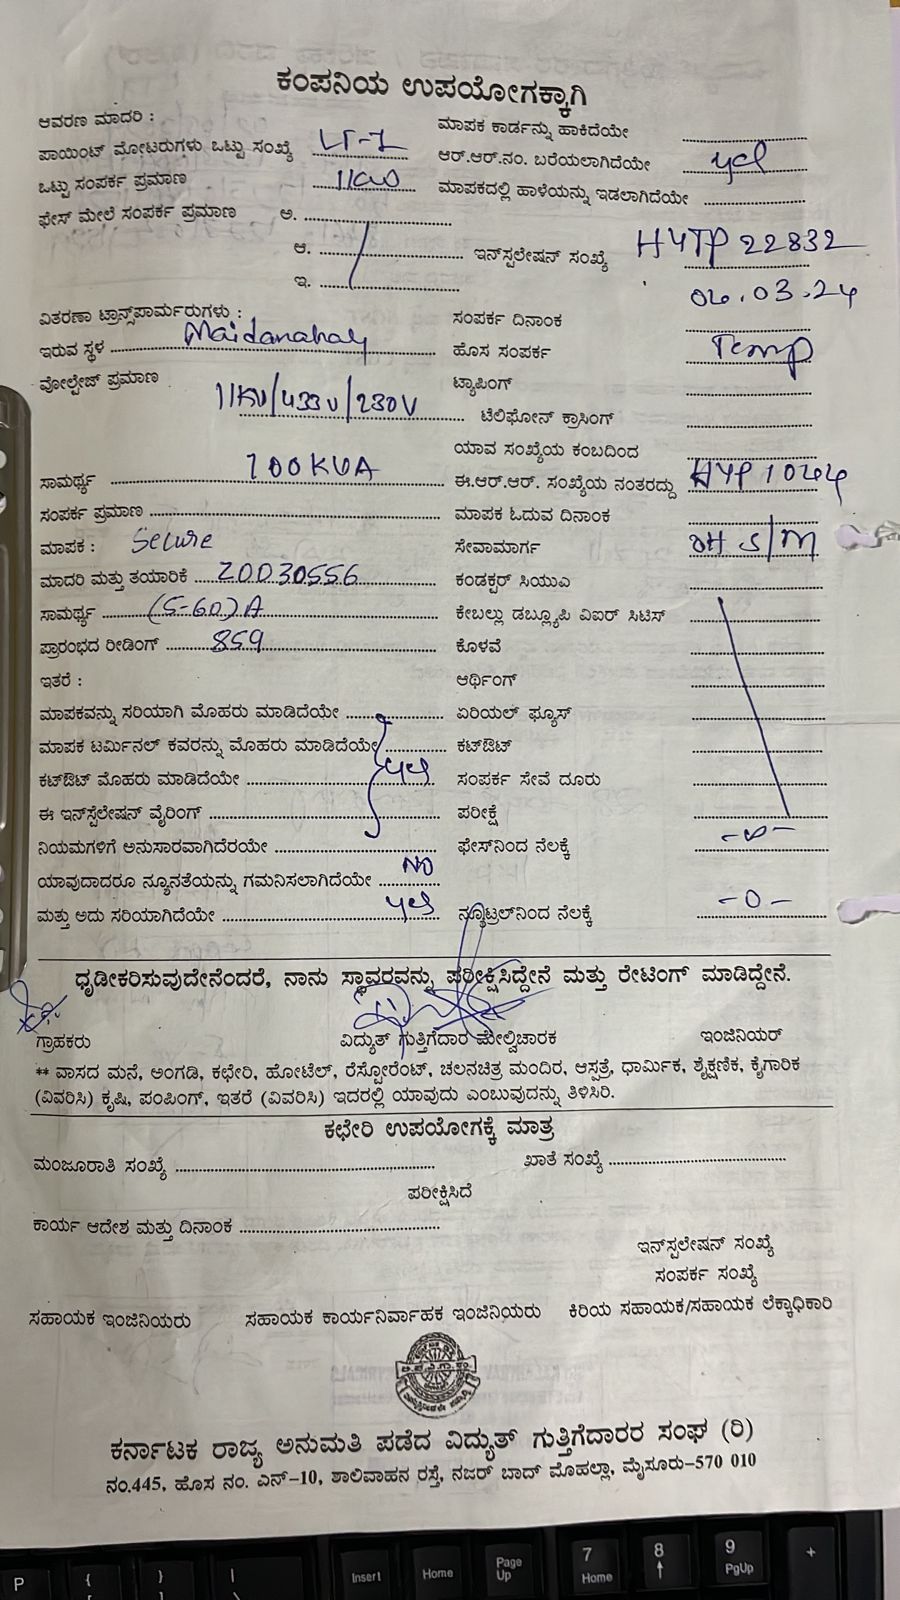 ಕಂಪನಿಯ ಉಪಯೋಗಕ್ಕಾಗಿ
ಆವರಣ ಮಾದರಿ : ಮಾಪಕ ಕಾರ್ಡನ್ನು ಹಾಕಿದೆಯೇ
ಪಾಯಿಂಟ್ ಮೋಟರುಗಳು ಒಟ್ಟು ಸಂಖ್ಯೆ LT-7 ಆರ್.ಆರ್.ನಂ. ಬರೆಯಲಾಗಿದೆಯೇ yes
ಒಟ್ಟು ಸಂಪರ್ಕ ಪ್ರಮಾಣ ಮಾಪಕದಲ್ಲಿ ಹಾಳೆಯನ್ನು ಇಡಲಾಗಿದೆಯೇ
ಫೇಸ್ ಮೇಲೆ ಸಂಪರ್ಕ ಪ್ರಮಾಣ ಅ.
ಆ. ಇನ್‌ಸ್ಟಲೇಷನ್ ಸಂಖ್ಯೆ HYTP 22832
ಇ.
ವಿತರಣಾ ಟ್ರಾನ್ಸ್‌ಪಾರ್ಮರುಗಳು : ಸಂಪರ್ಕ ದಿನಾಂಕ 04.03.24
ಇರುವ ಸ್ಥಳ Maidanahaly ಹೊಸ ಸಂಪರ್ಕ Temp
ವೋಲ್ಟೇಜ್ ಪ್ರಮಾಣ 11KV/433V/230V ಟ್ಯಾಪಿಂಗ್
ಟೆಲಿಫೋನ್ ಕ್ರಾಸಿಂಗ್
ಯಾವ ಸಂಖ್ಯೆಯ ಕಂಬದಿಂದ
ಸಾಮರ್ಥ್ಯ 100KVA ಈ.ಆರ್.ಆರ್. ಸಂಖ್ಯೆಯ ನಂತರದ್ದು
ಸಂಪರ್ಕ ಪ್ರಮಾಣ ಮಾಪಕ ಓದುವ ದಿನಾಂಕ
ಮಾಪಕ : Secure ಸೇವಾಮಾರ್ಗ OH S/M
ಮಾದರಿ ಮತ್ತು ತಯಾರಿಕೆ 20030556 ಕಂಡಕ್ಟರ್ ಸಿಯುಎ
ಸಾಮರ್ಥ್ಯ (5-60)A ಕೇಬಲ್ಲು ಡಬ್ಲ್ಯೂಪಿ ವಿಐರ್ ಸಿಟಿಸ್
ಪ್ರಾರಂಭದ ರೀಡಿಂಗ್ 859 ಕೊಳವೆ
ಇತರೆ : ಆರ್ಥಿಂಗ್
ಮಾಪಕವನ್ನು ಸರಿಯಾಗಿ ಮೊಹರು ಮಾಡಿದೆಯೇ ಏರಿಯಲ್ ಫ್ಯೂಸ್
ಮಾಪಕ ಟರ್ಮಿನಲ್ ಕವರನ್ನು ಮೊಹರು ಮಾಡಿದೆಯೇ ಕಟ್‌ಔಟ್
ಕಟ್‌ಔಟ್ ಮೊಹರು ಮಾಡಿದೆಯೇ yes ಸಂಪರ್ಕ ಸೇವೆ ದೂರು
ಈ ಇನ್‌ಸ್ಟೆಲೇಷನ್ ವೈರಿಂಗ್ ಪರೀಕ್ಷೆ
ನಿಯಮಗಳಿಗೆ ಅನುಸಾರವಾಗಿದೆರಯೇ ಫೇಸ್‌ನಿಂದ ನೆಲಕ್ಕೆ
ಯಾವುದಾದರೂ ನ್ಯೂನತೆಯನ್ನು ಗಮನಿಸಲಾಗಿದೆಯೇ NO
ಮತ್ತು ಅದು ಸರಿಯಾಗಿದೆಯೇ yes ನ್ಯೂಟ್ರಲ್‌ನಿಂದ ನೆಲಕ್ಕೆ -0-
ಧೃಡೀಕರಿಸುವುದೇನೆಂದರೆ, ನಾನು ಸ್ಥಾವರವನ್ನು ಪರೀಕ್ಷಿಸಿದ್ದೇನೆ ಮತ್ತು ರೇಟಿಂಗ್ ಮಾಡಿದ್ದೇನೆ.
ಗ್ರಾಹಕರು ವಿದ್ಯುತ್ ಗುತ್ತಿಗೆದಾರ ಮೇಲ್ವಿಚಾರಕ ಇಂಜಿನಿಯರ್
** ವಾಸದ ಮನೆ, ಅಂಗಡಿ, ಕಛೇರಿ, ಹೋಟೆಲ್, ರೆಸ್ಟೋರೆಂಟ್, ಚಲನಚಿತ್ರ ಮಂದಿರ, ಆಸ್ಪತ್ರೆ, ಧಾರ್ಮಿಕ, ಶೈಕ್ಷಣಿಕ, ಕೈಗಾರಿಕ
(ವಿವರಿಸಿ) ಕೃಷಿ, ಪಂಪಿಂಗ್, ಇತರೆ (ವಿವರಿಸಿ) ಇದರಲ್ಲಿ ಯಾವುದು ಎಂಬುವುದನ್ನು ತಿಳಿಸಿರಿ.
ಕಛೇರಿ ಉಪಯೋಗಕ್ಕೆ ಮಾತ್ರ
ಮಂಜೂರಾತಿ ಸಂಖ್ಯೆ ಖಾತೆ ಸಂಖ್ಯೆ
ಪರೀಕ್ಷಿಸಿದೆ
ಕಾರ್ಯ ಆದೇಶ ಮತ್ತು ದಿನಾಂಕ
ಇನ್‌ಸ್ಟಲೇಷನ್ ಸಂಖ್ಯೆ
ಸಂಪರ್ಕ ಸಂಖ್ಯೆ
ಸಹಾಯಕ ಇಂಜಿನಿಯರು ಸಹಾಯಕ ಕಾರ್ಯನಿರ್ವಾಹಕ ಇಂಜಿನಿಯರು ಕಿರಿಯ ಸಹಾಯಕ/ಸಹಾಯಕ ಲೆಕ್ಕಾಧಿಕಾರಿ
ಕರ್ನಾಟಕ ರಾಜ್ಯ ಅನುಮತಿ ಪಡೆದ ವಿದ್ಯುತ್ ಗುತ್ತಿಗೆದಾರರ ಸಂಘ (ರಿ)
ನಂ.445, ಹೊಸ ನಂ. ಎನ್-10, ಶಾಲಿವಾಹನ ರಸ್ತೆ, ನಜರ್ ಬಾದ್ ಮೊಹಲ್ಲಾ, ಮೈಸೂರು-570 010
P { } | Insert Home Page Up 7 Home 8 9 PgUp +